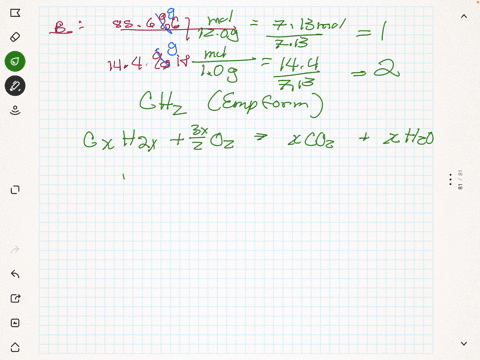 B: 85.6 g C | mol / 12.0g = 7.13 mol / 7.13 = 1
14.4 g H | mol / 1.0g = 14.4 / 7.13 = 2
CH2 (Emp form)
CxH2x + 3x/2 O2 → xCO2 + xH2O